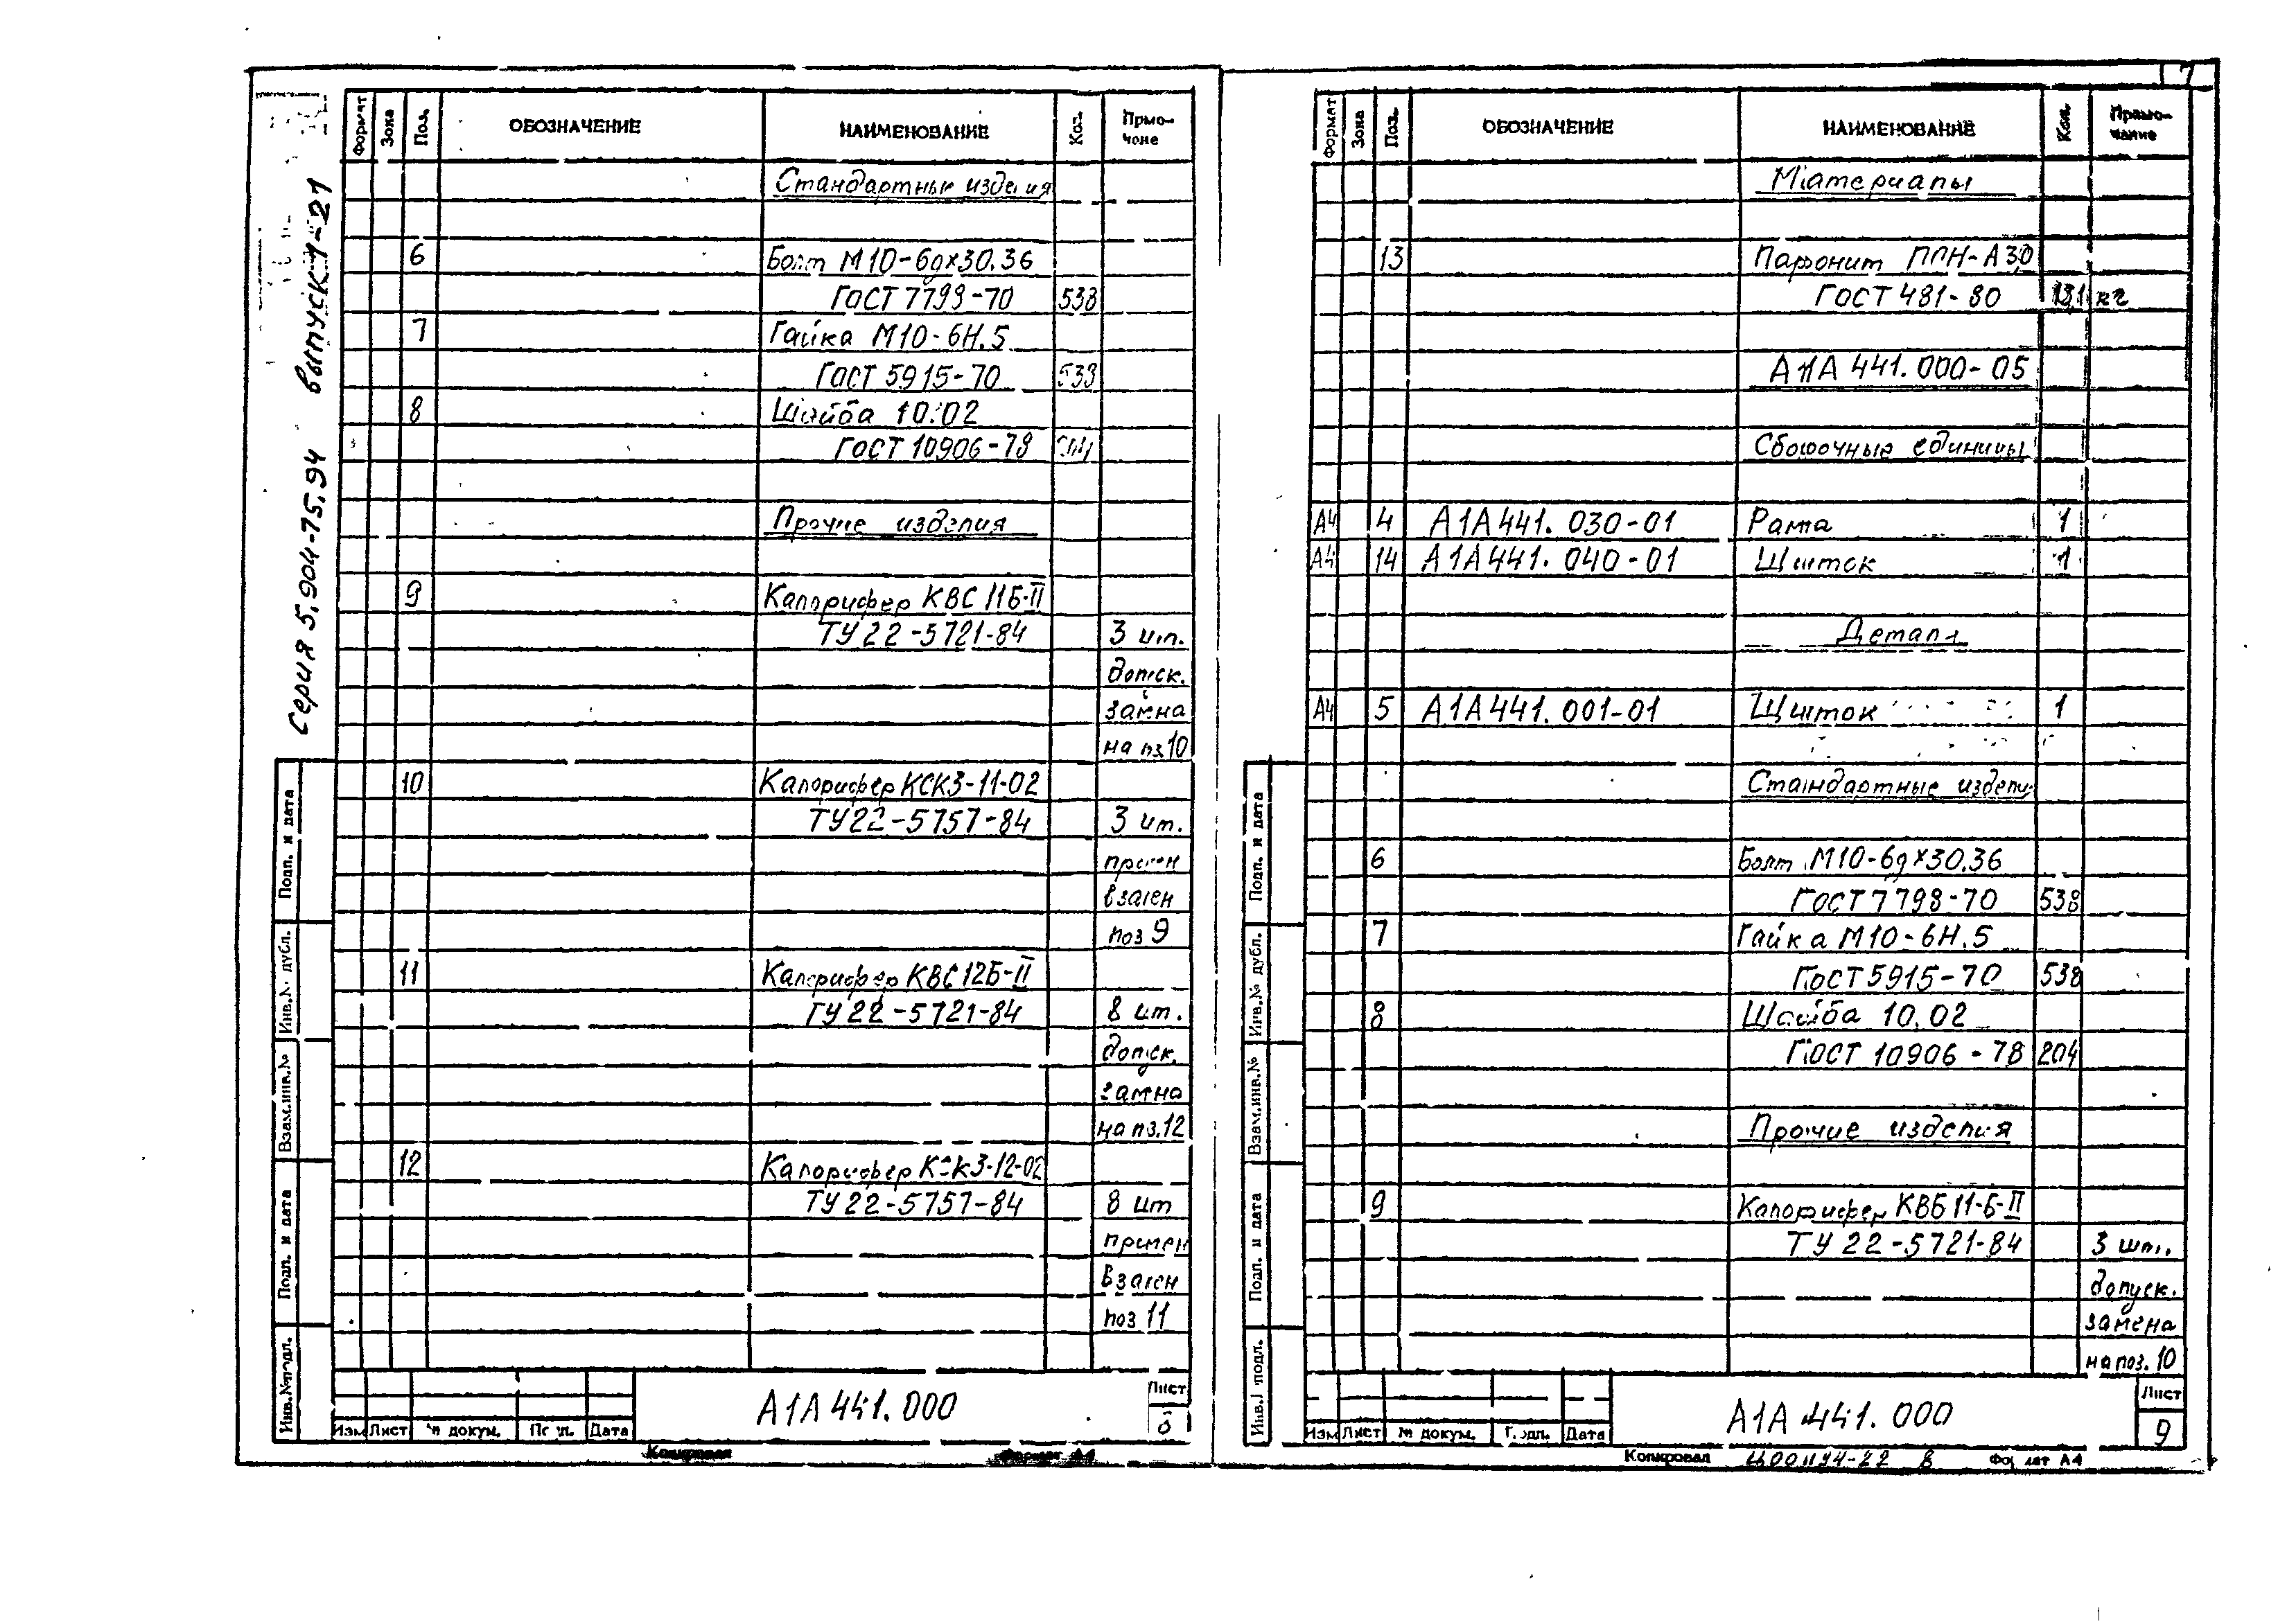 7
Серия 5.904-75.94 выпуск 1-21
Формат Зона Поз. ОБОЗНАЧЕНИЕ НАИМЕНОВАНИЕ Кол. Приме-
чание
Стандартные изделия
6 Болт М10-6gх30.36
ГОСТ 7798-70 538
7 Гайка М10-6Н.5
ГОСТ 5915-70 538
8 Шайба 10.02
ГОСТ 10906-78
Прочие изделия
9 Калорифер КВС 11Б-II
ТУ 22-5721-84 3 шт.
допск.
замна
на пз 10
10 Калорифер КСК3-11-02
ТУ 22-5757-84 3 шт.
примен
взамен
поз 9
11 Калорифер КВС12Б-II
ТУ 22-5721-84 8 шт.
допск.
замна
на пз.12
12 Калорифер КСК3-12-02
ТУ 22-5757-84 8 шт
примен
взамен
поз 11
Подп. и дата
Инв.№ дубл.
Взам.инв.№
Подп. и дата
Инв.№подл.
Изм Лист № докум. Подп. Дата
А1А 441.000
Лист
8
Копировал Формат А4
Формат Зона Поз. ОБОЗНАЧЕНИЕ НАИМЕНОВАНИЕ Кол. Приме-
чание
Материалы
13 Паронит ПОН-А 3,0
ГОСТ 481-80 13,1 кг
А1А 441.000-05
Сборочные единицы
А4 4 А1А441.030-01 Рама 1
А4 14 А1А441.040-01 Щиток 1
Детали
А4 5 А1А441.001-01 Щиток 1
Стандартные издели
6 Болт М10-6gх30.36
ГОСТ 7798-70 538
7 Гайка М10-6Н.5
ГОСТ 5915-70 538
8 Шайба 10.02
ГОСТ 10906-78 204
Прочие изделия
9 Калорифер КВБ 11-Б-II
ТУ 22-5721-84 3 шт.
допуск.
замена
на поз. 10
Подп. и дата
Инв.№ дубл.
Взам.инв.№
Подп. и дата
Инв.№ подл.
Изм Лист № докум. Подп. Дата
А1А 441.000
Лист
9
Копировал Ц00194-22 8 Формат А4